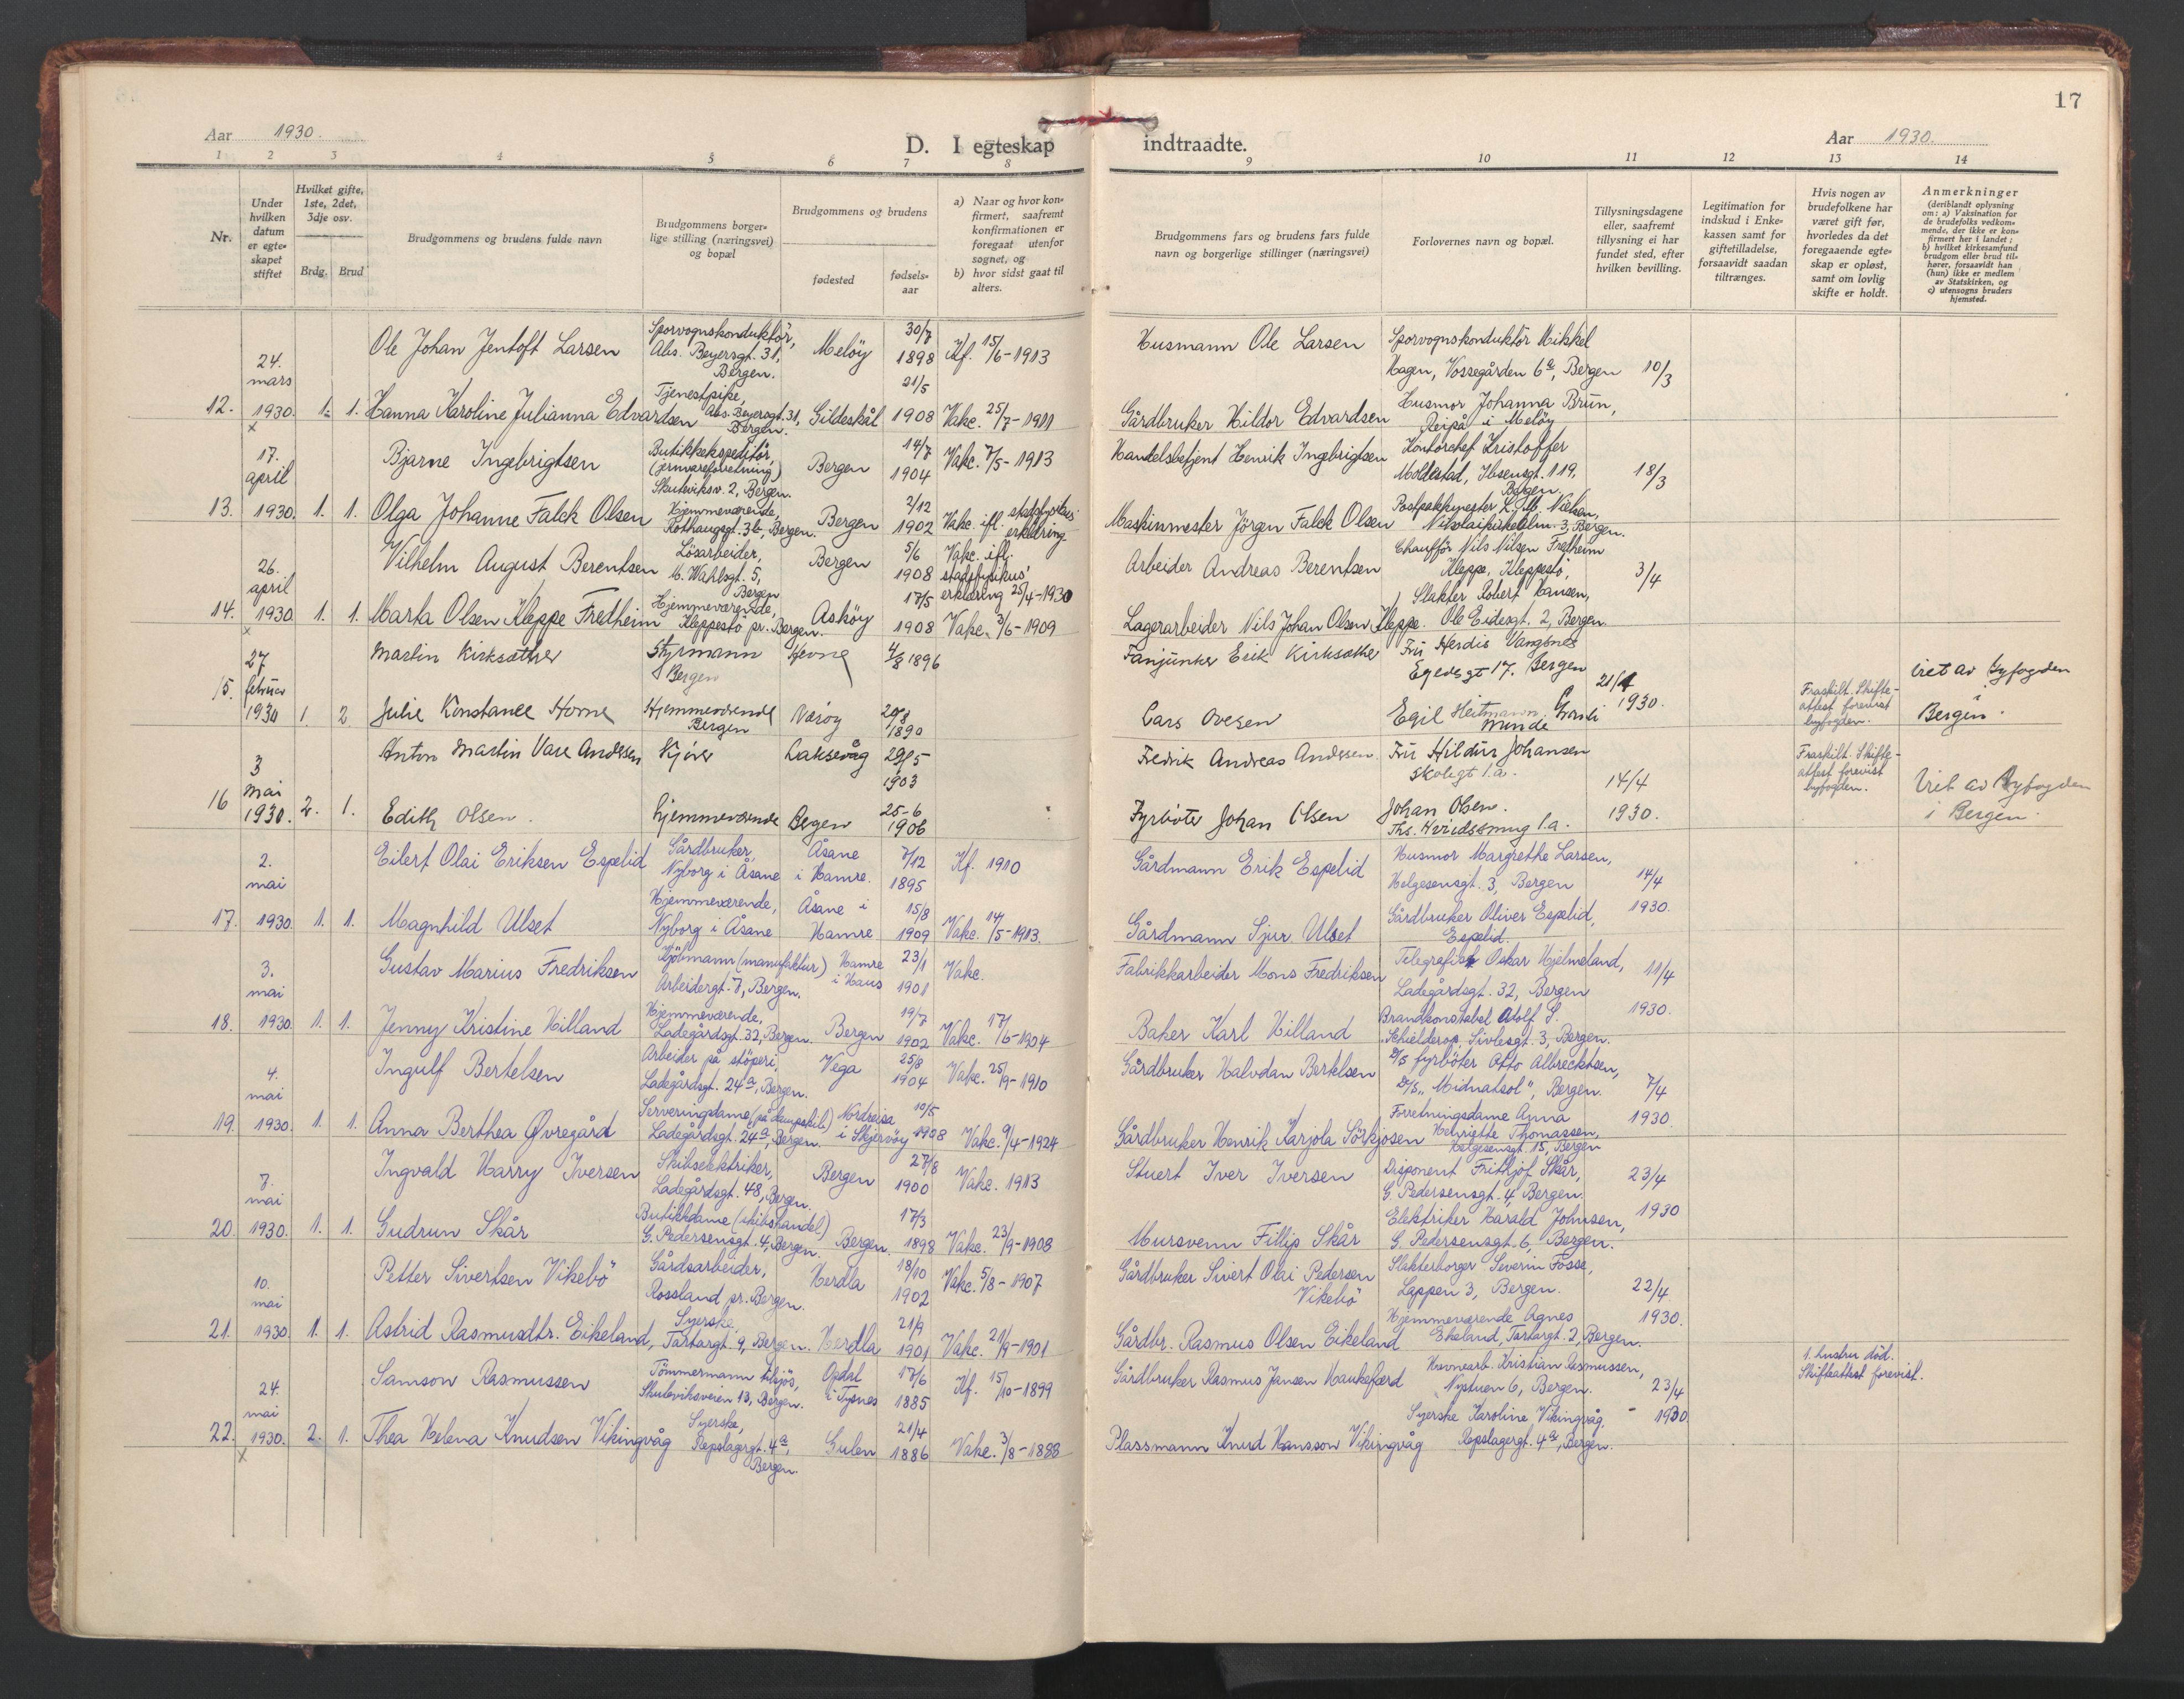 17
Aar 1930.
D. I egteskap indtraadte.
Aar 1930.
1 2 3 4 5 6 7 8 9 10 11 12 13 14
Nr.
Under hvilken datum er egteskapet stiftet
Hvilket gifte, 1ste, 2det, 3dje osv.
Brdg. Brud
Brudgommens og brudens fulde navn
Brudgommens borgerlige stilling (næringsvei) og bopæl
Brudgommens og brudens
fødested
fødselsaar
a) Naar og hvor konfirmert, saafremt konfirmationen er foregaat utenfor sognet, og
b) hvor sidst gaat til alters.
Brudgommens fars og brudens fars fulde navn og borgerlige stillinger (næringsvei)
Forlovernes navn og bopæl.
Tillysningsdagene eller, saafremt tillysning ei har fundet sted, efter hvilken bevilling.
Legitimation for indskud i Enkekassen samt for giftetilladelse, forsaavidt saadan tiltrænges.
Hvis nogen av brudefolkene har været gift før, hvorledes da det foregaaende egteskap er opløst, samt om lovlig skifte er holdt.
Anmerkninger
(deriblandt oplysning om: a) Vaksination for de brudefolks vedkommende, der ikke er konfirmert her i landet; b) hvilket kirkesamfund brudgom eller brud tilhører, forsaavidt han (hun) ikke er medlem av Statskirken, og c) utensogns bruders hjemsted.
12. 24. mars 1930. x 1. 1.
Ole Johan Jentoft Larsen
Sporvognskonduktör, Abs. Beyersgt. 31, Bergen.
Melöy
30/7 1898
Kf. 15/6-1913
Husmann Ole Larsen
Sporvognskonduktör Mikkel Hagen, Vossegården 6a, Bergen
10/3
Hanna Karoline Julianna Edvardsen
Tjenestpike, Abs. Beyersgt. 31, Bergen.
Gildeskål
21/5 1908
Vakc. 25/7-1911
Gårdbruker Hildor Edvardsen
Husmor Johanna Brun, Reipå i Melöy
13. 17. april 1930. 1. 1.
Bjarne Ingebrigtsen
Butikkekspeditör, (jernvareforretning) Skuteviksv. 2, Bergen.
Bergen
14/7 1904
Vakc. 7/5-1913
Handelsbetjent Henrik Ingebrigtsen
Kontorchef Kristoffer Moldestad, Ibsensgt. 119, Bergen.
18/3
Olga Johanne Falck Olsen
Hjemmeværende, Rothaugsgt. 3b, Bergen.
Bergen
2/12 1902
Vakc. ifl. stadsfysikus' erklæring
Maskinmester Jörgen Falck Olsen
Postpakkmester L. M. Nielsen, Nikolaikirkealm. 3, Bergen.
14. 26. april 1930. x 1. 1.
Vilhelm August Berentsen
Lösarbeider, M. Wahlsgt. 5, Bergen
Bergen
5/6 1908
Vakc. ifl. stadsfysikus' erklæring 25/4-1930
Arbeider Andreas Berentsen
Chaufför Nils Nilsen Fredheim Kleppe, Kleppestö,
3/4
Marta Olsen Kleppe Fredheim
Hjemmeværende, Kleppestö pr. Bergen.
Asköy
17/5 1908
Vakc. 3/6-1909
Lagerarbeider Nils Johan Olsen Kleppe.
Slakter Robert Hansen, Ole Eidesgt. 2, Bergen.
15. 27 februar 1930 1. 2.
Martin Kirksæther
Styrmann Bergen
Hevne
4/8 1896
Fanjunker Erik Kirksæthe
Fru Herdis Vangsnes Egedsgt 17. Bergen
1930.
Fraskilt. Skifteattest forevist byfogden.
Viet av Byfogden i Bergen.
Julie Konstance Horne
Hjemmeværende Bergen
Nærøy
29/8 1890
Lars Ovesen
Egil Heitmann
16 3 mai 1930. 2. 1.
Anton Martin Vare Andersen
Kjører
Laksevåg
29/5 1903
Fredrik Andreas Andersen
Fru Hildur Johansen Skolegt 1.a.
14/4 1930.
Fraskilt. Skifteattest forevist byfogden.
Viet av Byfogden i Bergen.
Edith Olsen.
Hjemmeværende
Bergen
25-6 1906
Fyrbøter Johan Olsen
Johan Olsen. Ths. Hvidssmug 1.a.
17. 2. mai 1930. 1. 1.
Eilert Olai Eriksen Espelid
Gårdbruker, Nyborg i Åsane
Åsane i Hamre.
7/12 1895
Kf. 1910
Gårdmann Erik Espelid
Husmor Margrethe Larsen, Helgesensgt. 3, Bergen
14/4 1930.
Magnhild Ulset
Hjemmeværende, Nyborg i Åsane
Åsane i Hamre
15/8 1909
Vakc. 14/5-1913.
Gårdmann Sjur Ulset
Gårdbruker Oliver Espelid, Espelid.
18. 3. mai 1930. 1. 1.
Gustav Marius Fredriksen
Kjöbmann (manufaktur) Arbeidergt. 7, Bergen.
Hamre i Haus
23/1 1901
Vakc.
Fabrikkarbeider Mons Fredriksen
Telegrafist Oskar Hjelmeland, Ladegårdsgt. 32, Bergen
11/4 1930.
Jenny Kristine Hilland
Hjemmeværende, Ladegårdsgt. 32, Bergen.
Bergen
19/7 1902
Vakc. 17/6-1904
Baker Karl Hilland
Brandkonstabel Adolf S. Schielderop, Sivlesgt. 3, Bergen.
19. 4. mai 1930. 1. 1.
Ingulf Bertelsen
Arbeider på stöperi, Ladegårdsgt. 24a, Bergen.
Vega
25/8 1904
Vakc. 25/9-1910
Gårdbruker Halvdan Bertelsen
fyrböter Otto Albrecktsen, D/S. "Midnatsol", Bergen.
7/4 1930.
Anna Berthea Øvregård
Serveringsdame (på dampskib) Ladegårdsgt. 24a, Bergen.
Nordreisa i Skjervöy
10/5 1908
Vakc. 9/4-1924
Gårdbruker Henrik Karjola Sörkjosen
Forretningsdame Anna Henrigtte Thomassen, Helgesensgt. 15, Bergen
20. 7. mai 1930. 1. 1.
Ingvald Harry Iversen
Skibselektriker, Ladegårdsgt. 48, Bergen.
Bergen
27/8 1900
Vakc. 1913
Stuert Iver Iversen
Disponent Frithjof Skår, G. Pedersensgt. 4, Bergen.
23/4 1930
Gudrun Skår
Butikkdame (skibshandel) G. Pedersensgt. 4, Bergen.
Bergen.
17/3 1898
Vakc. 23/9-1908
Mursvenn Fillip Skår
Elektriker Harald Johnsen, G. Pedersensgt. 6, Bergen.
21. 10. mai 1930. 1. 1.
Petter Sivertsen Vikebö
Gårdsarbeider, Rossland pr. Bergen.
Herdla
18/10 1902
Vakc. 5/8-1907
Gårdbruker Sivert Olai Pedersen Vikebö
Slakterborger Severin Fosse, Lappen 3, Bergen.
22/4 1930.
Astrid Rasmusdtr. Eikeland,
Syerske, Tartargt. 9, Bergen.
Herdla
21/9 1901
Vakc. 21/9-1901
Gårdbr. Rasmus Olsen Eikeland
Hjemmeværende Agnes Eikeland, Tartargt. 2, Bergen.
22. 24. mai 1930. x 2. 1.
Samson Rasmussen
Tömmermann tilsjös, Skuteviksveien 13, Bergen.
Opdal i Tysnes
17/6 1885
Kf. 15/10-1899
Gårdbruker Rasmus Jansen Haukefærd
Havnearb. Kristian Rasmussen, Nystuen 6, Bergen.
23/4 1930
1. hustru död. Skifteattest forevist.
Thea Helena Knudsen Vikingvåg
Syerske, Repslagergt. 4a, Bergen.
Gulen
21/4 1886
Vakc. 3/8-1888
Plassmann Knud Hansson Vikingvåg
Syerske Karoline Vikingvåg. Repslagergt. 4a, Bergen.